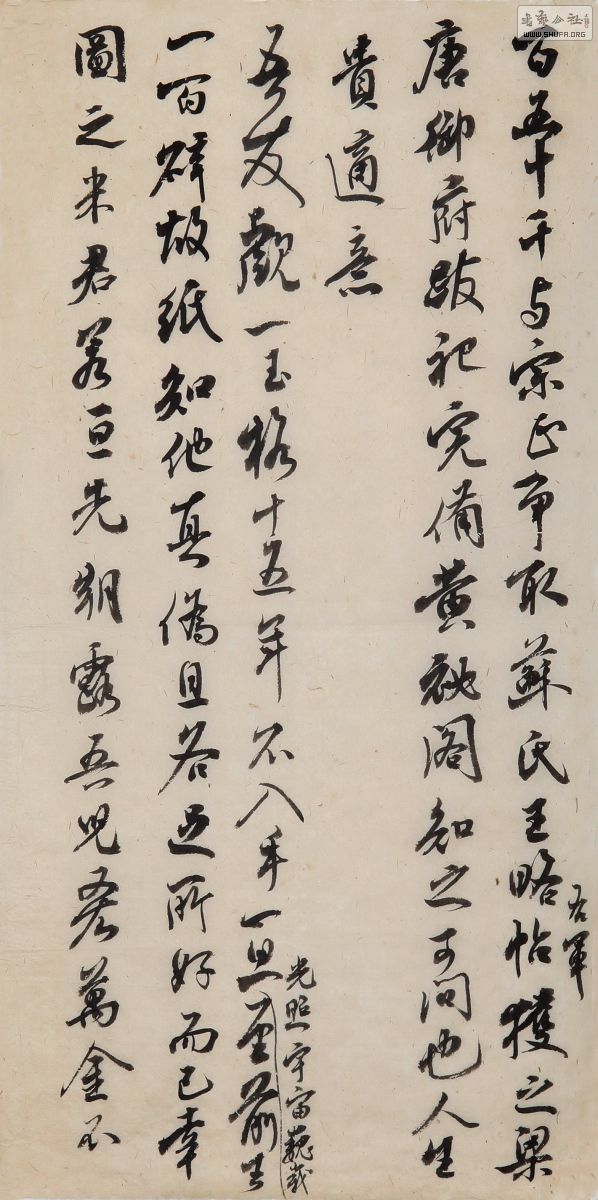 百五十千与宗正争取蘇氏王略帖獲之梁
右軍
唐御府跋記完備黄秘閣知之可問也人生
貴適意
吾友觀一玉格十五年不入手一旦至前去
光照宇宙巍峩
一百碎故紙知他真偽且各足所好而已幸
圖之米君若一旦先朝露吾兒吝萬金不
WWW.SHUFA.ORG